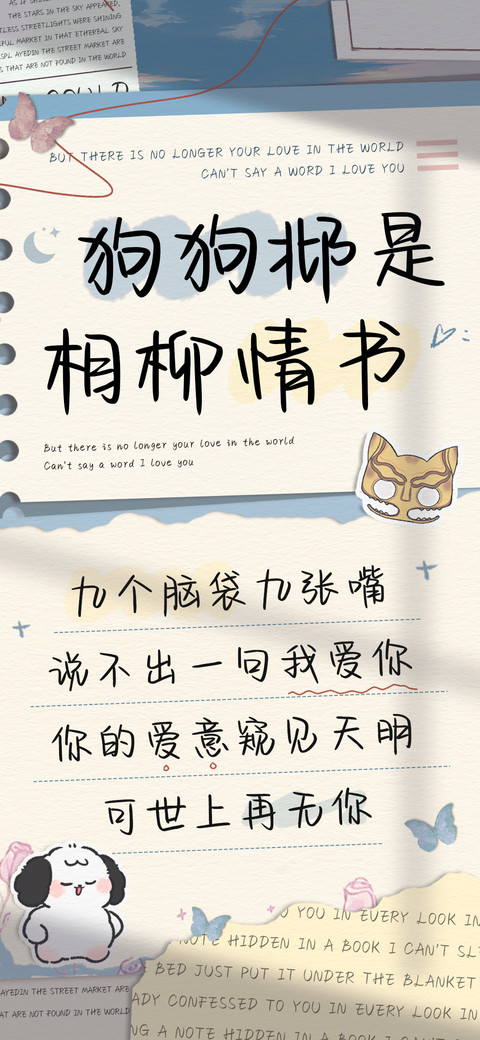 THE STARS IN THE SKY APPEARED,
TLESS STREETLIGHTS WERE SHINING
FUL MARKET IN THAT ETHEREAL SKY
SPL AYEDIN THE STREET MARKET ARE
S THAT ARE NOT FOUND IN THE WORLD
BUT THERE IS NO LONGER YOUR LOVE IN THE WORLD
CAN'T SAY A WORD I LOVE YOU
狗狗邶是
相柳情书
But there is no longer your love in the world
Can't say a word I love you
九个脑袋九张嘴
说不出一句我爱你
你的爱意窥见天明
可世上再无你
O YOU IN EVERY LOOK IN
NOTE HIDDEN IN A BOOK I CAN'T SL
BED JUST PUT IT UNDER THE BLANKET
ADY CONFESSED TO YOU IN EVERY LOOK IN
NG A NOTE HIDDEN IN A BOOK I CAN'T
AYEDIN THE STREET MARKET ARE
AT ARE NOT FOUND IN THE WORLD